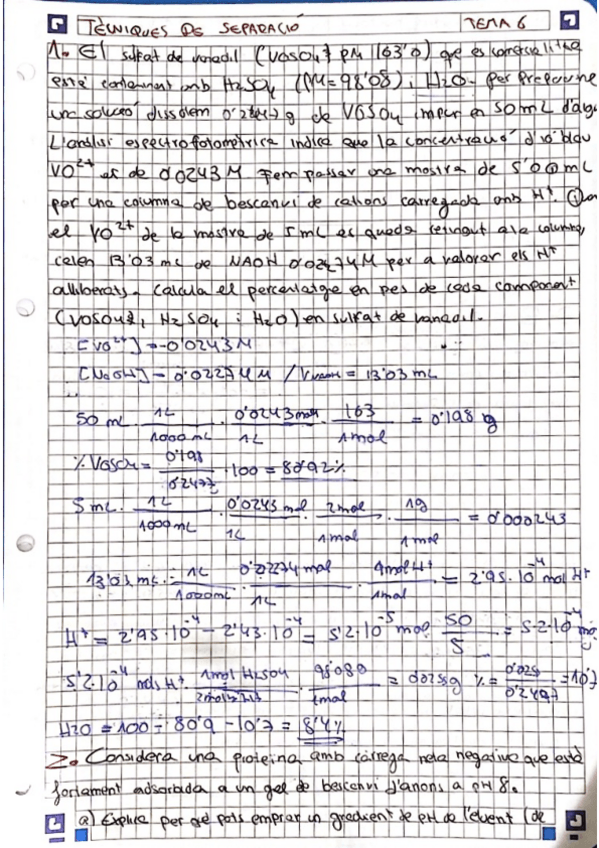 TÈCNIQUES DE SEPARACIÓ TEMA 6
1. El sulfat de vanadil (VOSO4; PM 163'0) que es comercialitza
està contaminat amb H2SO4 (PM=98'08) i H2O. Per preparar
una solució dissolem 0'2447 g de VOSO4 impur en 50mL d'aigu
L'anàlisi espectrofotomètrica indica que la concentració d'ió blau
VO2+ és de 0'0243M Fem passar una mostra de 5'00mL
per una columna de bescanvi de cations carregada amb H+.
el VO2+ de la mostra de 5 mL es queda retingut a la columna,
calen 13'03 mL de NAOH 0'02274M per a valorar els H+
alliberats. Calcula el percentatge en pes de cada component
(VOSO4, H2SO4 i H2O) en sulfat de vanadil.
[VO2+] = 0'0243M
[NaOH] = 0'02274M / VNaOH = 13'03 mL
50 mL · 1L/1000 mL · 0'0243mol/1L · 163/1mol = 0'198 g
% VOSO4 = 0'198/0'2447 · 100 = 80'92%
5 mL · 1L/1000mL · 0'0243 mol/1L · 2mol/1mol · 1g/1mol = 0'000243
13'03 mL · 1L/1000mL · 0'02274 mol/1L · 1mol H+/1mol = 2'95·10-4 mol H+
H+ = 2'95·10-4 - 2'43·10-4 = 5'2·10-5 mol · 50/5 = 5'2·10-4 mol
5'2·10-4 mols H+ · 1mol H2SO4/2mols H+ · 98'080/1mol = 0'0255g % = 0'0255/0'2447 = 10'7
H2O = 100 - 80'9 - 10'7 = 8'4%
2. Considera una proteïna amb càrrega neta negativa que està
fortament adsorbida a un gel de bescanvi d'anions a pH 8.
a) Explica per què pots emprar un gradient de pH de l'eluent (de